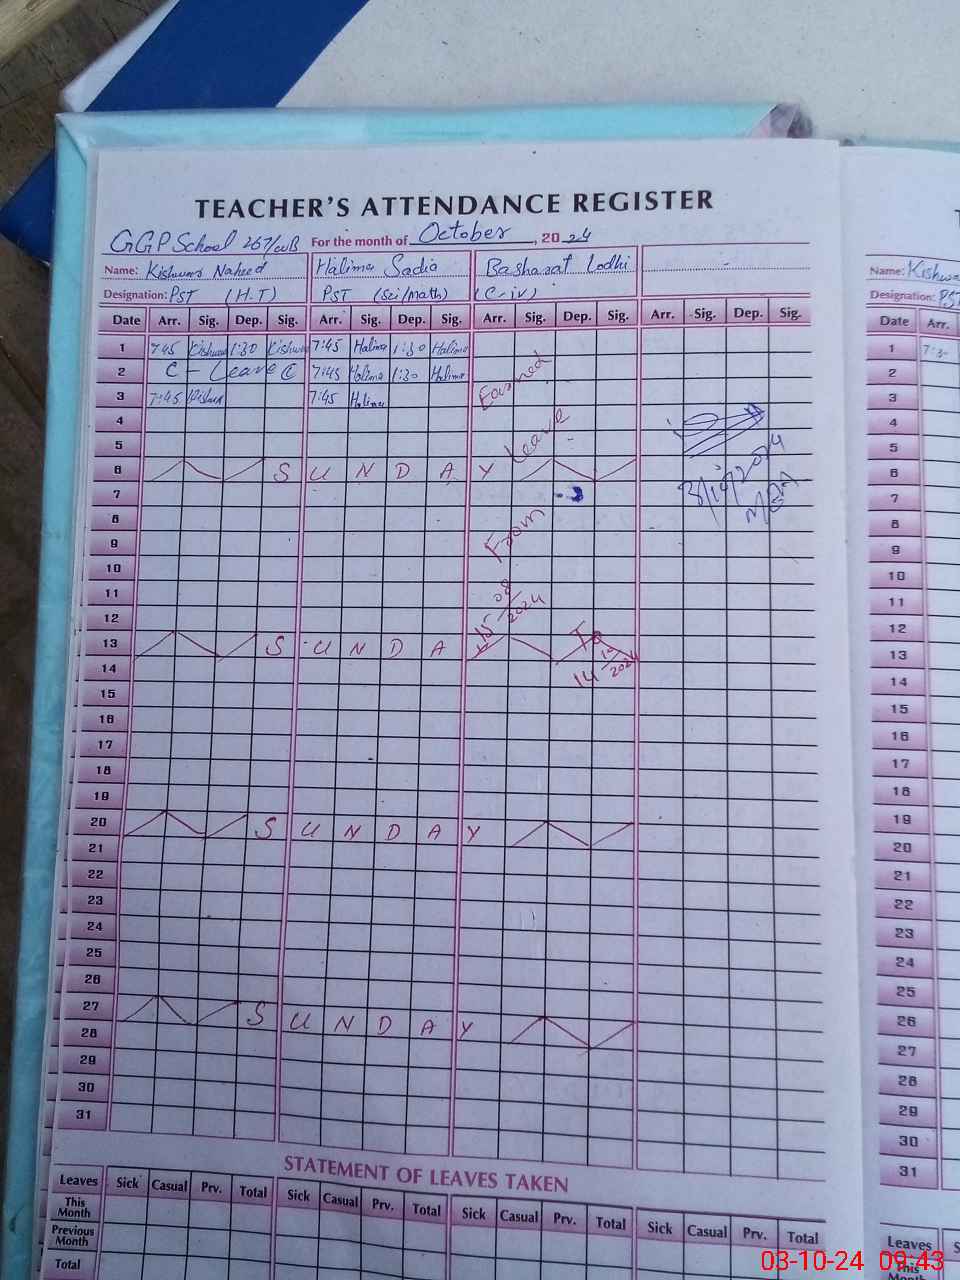 TEACHER'S ATTENDANCE REGISTER
GGP School 267/WB For the month of October, 2024
Name: Kishwar Naheed Halima Sadia Basharat Lodhi
Designation: PST (H.T) PST (Sci/Math) (C-iv)
Date Arr. Sig. Dep. Sig. Arr. Sig. Dep. Sig. Arr. Sig. Dep. Sig. Arr. Sig. Dep. Sig.
1 7:45 Kishwar 1:30 Kishwar 7:45 Halima 1:30 Halima
2 C - Leave C 7:45 Halima 1:30 Halima
3 7:45 Kishwar 7:45 Halima
Earned
4
5
Leave
6 SUNDAY
7
3/10/2024
8
From
9
10
11
15/08/2024
12
13 SUNDA To
14 14/10/2024
15
16
17
18
19
20 SUNDAY
21
22
23
24
25
26
27 SUNDAY
28
29
30
31
STATEMENT OF LEAVES TAKEN
Leaves Sick Casual Prv. Total Sick Casual Prv. Total Sick Casual Prv. Total Sick Casual Prv. Total
This Month
Previous Month
Total
Name:
Designation: PST
Date Arr.
1
2
3
4
5
6
7
8
9
10
11
12
13
14
15
16
17
18
19
20
21
22
23
24
25
26
27
28
29
30
31
Leaves
This
03-10-24 09:43